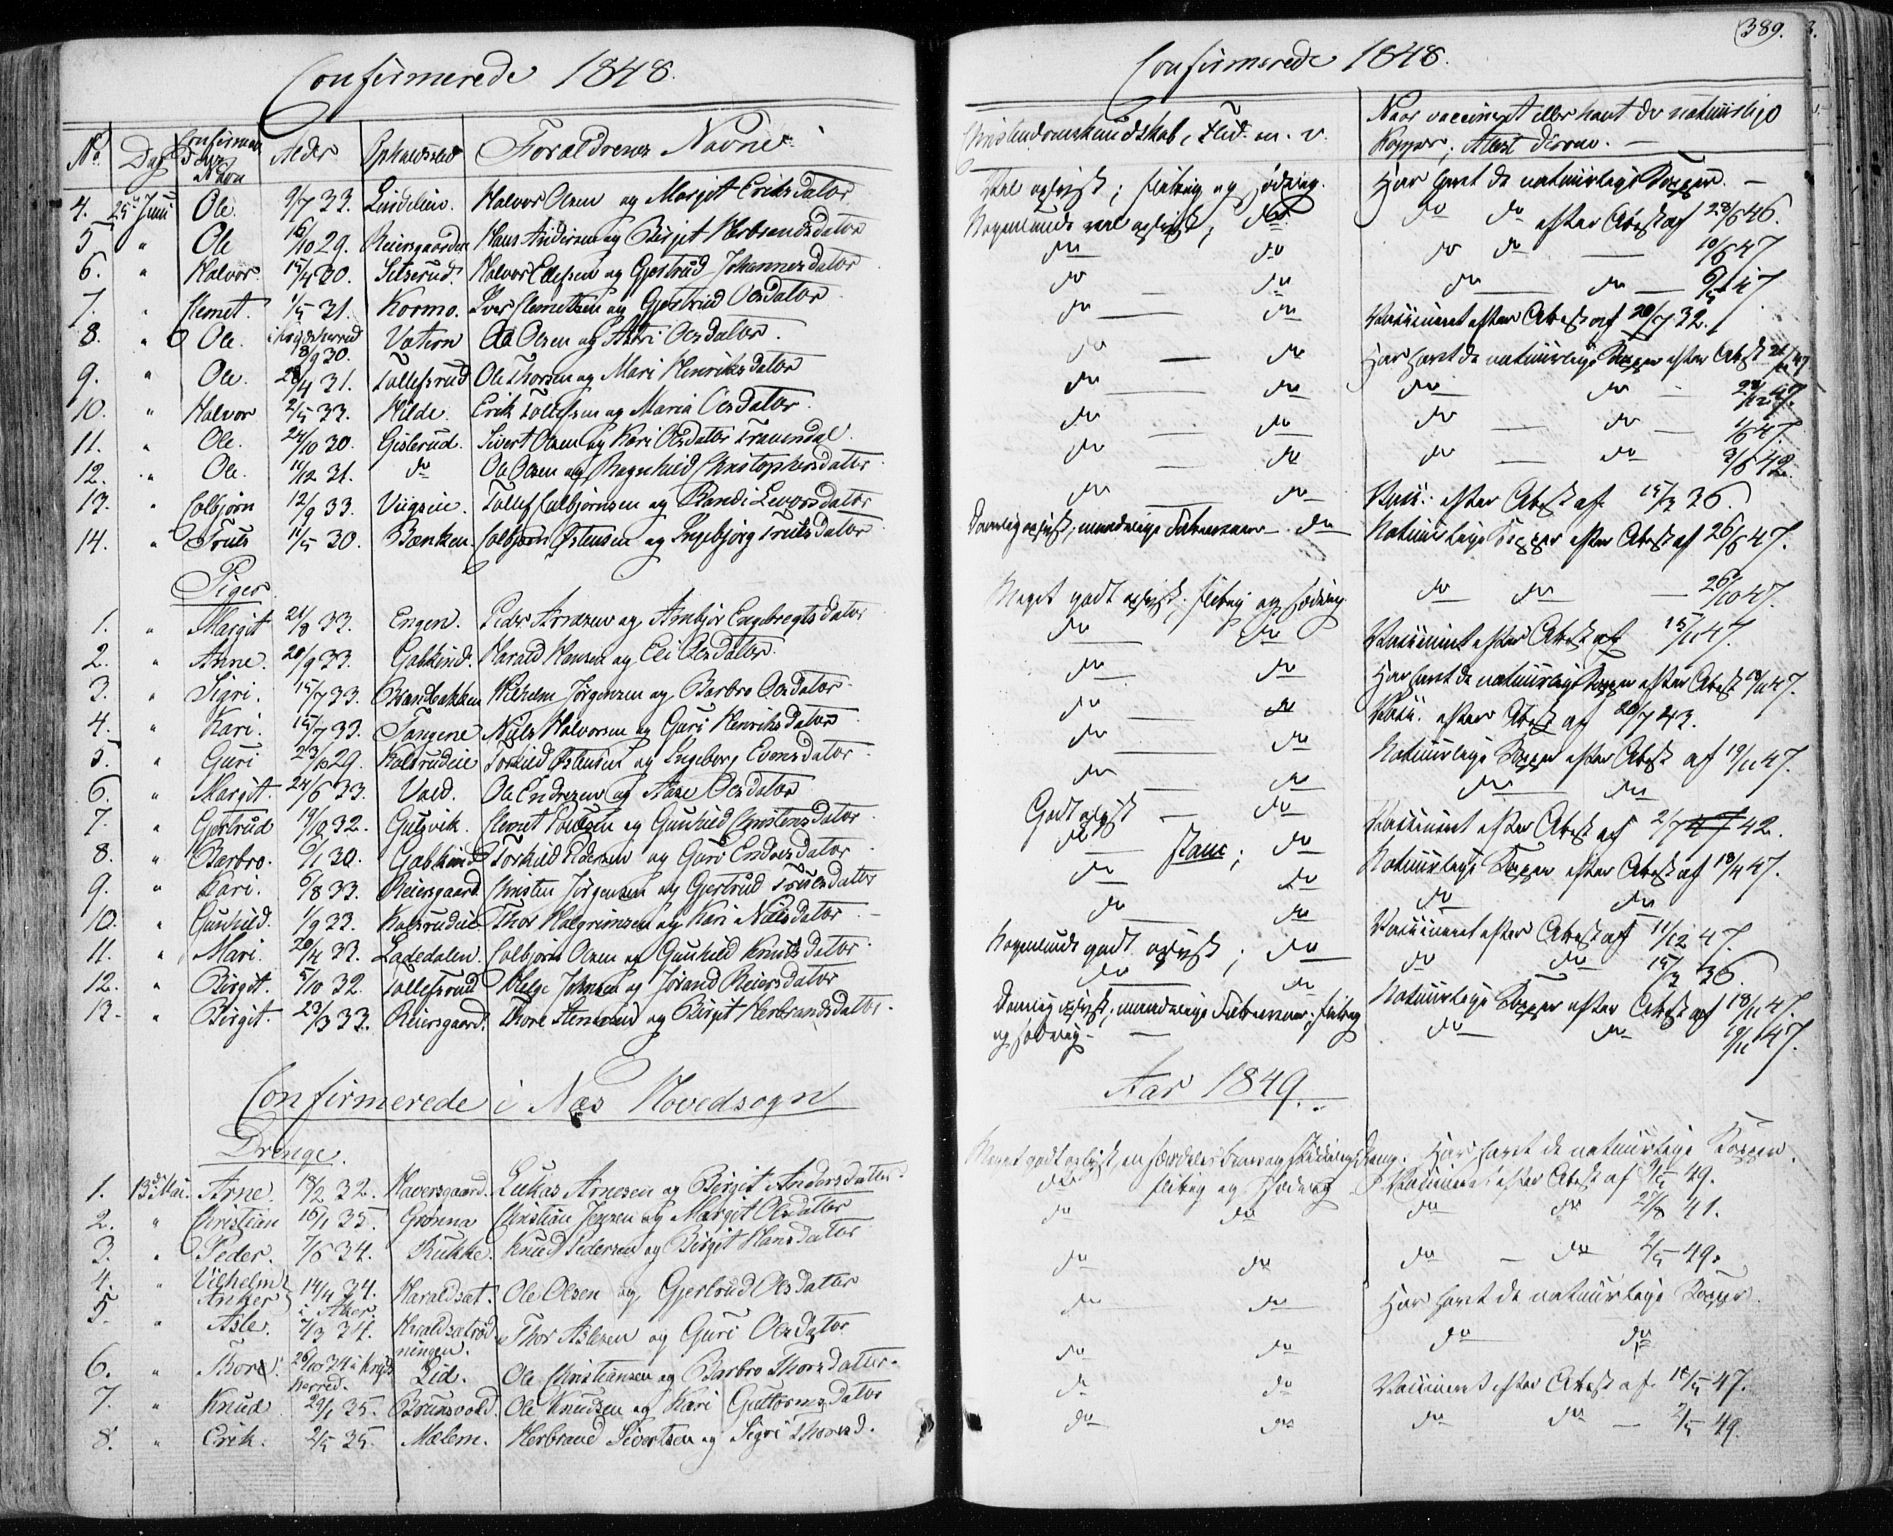 Confirmerede 1848.
No. Dag Confirmandens Navn Alder Opholdssted Forældrenes Navne
4. 25de Juni Ole. 9/7 33. Lindelien. Halvor Olsen og Margit Eriksdatter
5 " Ole 16/10 29. Reiersgaarden Hans Andersen og Birgit Herbrandsdatter
6. " Halvor. 15/4 30. Halvor Ellefsen og Gjertrud Johannesdatter
7. " Clemet. 1/5 31. Kormo. Iver Clemetsen og Gjertrud Olsdatter
8. " Ole. 8/9 30. Ole Olsen og Astri Olsdatter.
9. " Ole. 31. Tollefsrud Ole Thorsen og Mari Henriksdatter
10. " Halvor 2/5 33. Hilde. Erik Tollefsen og Maria Olsdatter.
11. " Ole. 24/10 30. Gislerud. Sivert Olsen og Kari Olsdatter Trauendal.
12. " Ole. 11/12 31. do Ole Olsen og Ragnhild Christophersdatter
13. " Colbjørn 12/9 33. Viigseie. Tollef Colbjørnsen og Randi Leversdatter
14. " Truls 11/5 30. Bænken. Colbjørn Østensen og Ingebjørg Trulsdatter
Piger.
1. " Margit 24/8 33. Engen. Peder Arnesen og Arnbjør Engebregtsdatter
2. " Anne. 20/9 33. Gabkind. Harald Hansen og Eli Olsdatter
3. " Sigri. 15/7 33. Brandbakken Vilhelm Jørgensen og Barbro Olsdatter
4. " Kari. 15/7 33. Tangene Niels Halvorsen og Guri Henriksdatter
5. " Guri 29. Kolsrudeie Torkild Østensen og Ingeborg Evensdatter
6. " Margit. 24/6 33. Vold. Ole Endresen og Aase Olsdatter
7. " Gjertrud 32. Gulsvik. Clemet Poulsen og Gunhild Christensdatter
8. " Barbro. 6/1 30. Gabkind Torkild Pedersen og Guri Endresdatter
9. " Kari. 6/8 33. Reiersgaard. Christen Jørgensen og Gjertrud Trulsdatter
10. " Gunhild. 1/9 33. Kolsrudeie Thor Halgrimsen og Kari Nielsdatter
11. " Mari. 20/4 33. Ladedalen. Colbjørn Olsen og Gunhild Knudsdatter
12. " Birgit. 5/10 32. Tollefsrud Helge Johnsen og Jørand Reiersdatter
13. " Birgit. 23/3 33. Reiersgaard. Thore Stensen og Birgit Herbrandsdatter.
Confirmerede i Næs Hovedsogn
Drenge.
1. 13de Mai. Arne. 18/2 32. Haversgaard. Lukas Arnesen og Birgit Andersdatter.
2. " Christian 16/1 35. Grønna Christian Jensen og Margit Olsdatter
3. " Peder. 7/6 34. Rukke. Knud Pedersen og Birgit Hansdatter
4. " Vilhelm Anker 14/4 34. i Aker Haraldsæt. Ole Olsen og Gjertrud Olsdatter
5. " Asle. 2/3 34. Haraldsætrødningen. Thor Aslesen og Guri Olsdatter
6. " Thore. 26/10 34 i herred. Lid. Ole Christiansen og Barbro Thorsdatter.
7. " Knud 29/1 35. Brunsvold. Ole Knudsen og Kari Guttormsdatter
8. " Erik. 2/5 35. Mælem. Herbrand Sivertsen og Sigri Thorsd.
389.
Confirmerede 1848.
Christendomskundskab, Flid m. v. Naar vaccineret eller havt de naturlige
Kopper; Attest derom.
Vel oplyst; flittig og sædelig. Har havt de naturlige Kopper.
Nogenlunde vel oplyst; do. do do efter Attest af 28/6 46.
do do do do 10/6 47
do do do do
do do Vaccineret efter Attest af 20/7 32.
do do Har havt de naturlige Kopper efter Attest
do do do do
do do do do 1/6 47.
do do do do 3/6 42.
do do Vacc: efter Attest af 15/3 36.
Daarlig oplyst, maadelige Fatteevner do Naturlige Kopper efter Attest af 26/6 47.
Meget godt oplyst. flittig og sædelig do do 26/10 47.
do do Vaccineret efter Attest af 15/11 47.
do do Har havt de naturlige Kopper efter Attest 18/11 47.
do do Vacc. efter Attest af 20/7 43.
do do Naturlige Kopper efter Attest af 19/11 47.
do do do do
Godt oplyst do Vaccineret efter Attest af 2/7 42.
do do Naturlige Kopper efter Attest af 18/4 47.
do do do do
do do Vaccineret efter Attest af 11/12 47.
Nogenlunde godt oplyst; do do do 15/3 36.
do do Naturlige Kopper efter Attest af 18/11 47.
Daarlig oplyst; maadelige Fatteevner; flittig do do 19/11 47.
og sædelig.
Aar 1849.
Meget godt oplyst, en særdeles brav og skikkelig Dreng. Har havt de naturlige Kopper.
do flittig og sædelig Vaccineret efter Attest af 49.
do do do do 27/8 41.
do do do do 2/5 49.
do do Har havt de naturlige Kopper.
do do do do
do do Vaccineret efter Attest af 18/5 47.
do do do do 2/5 49.